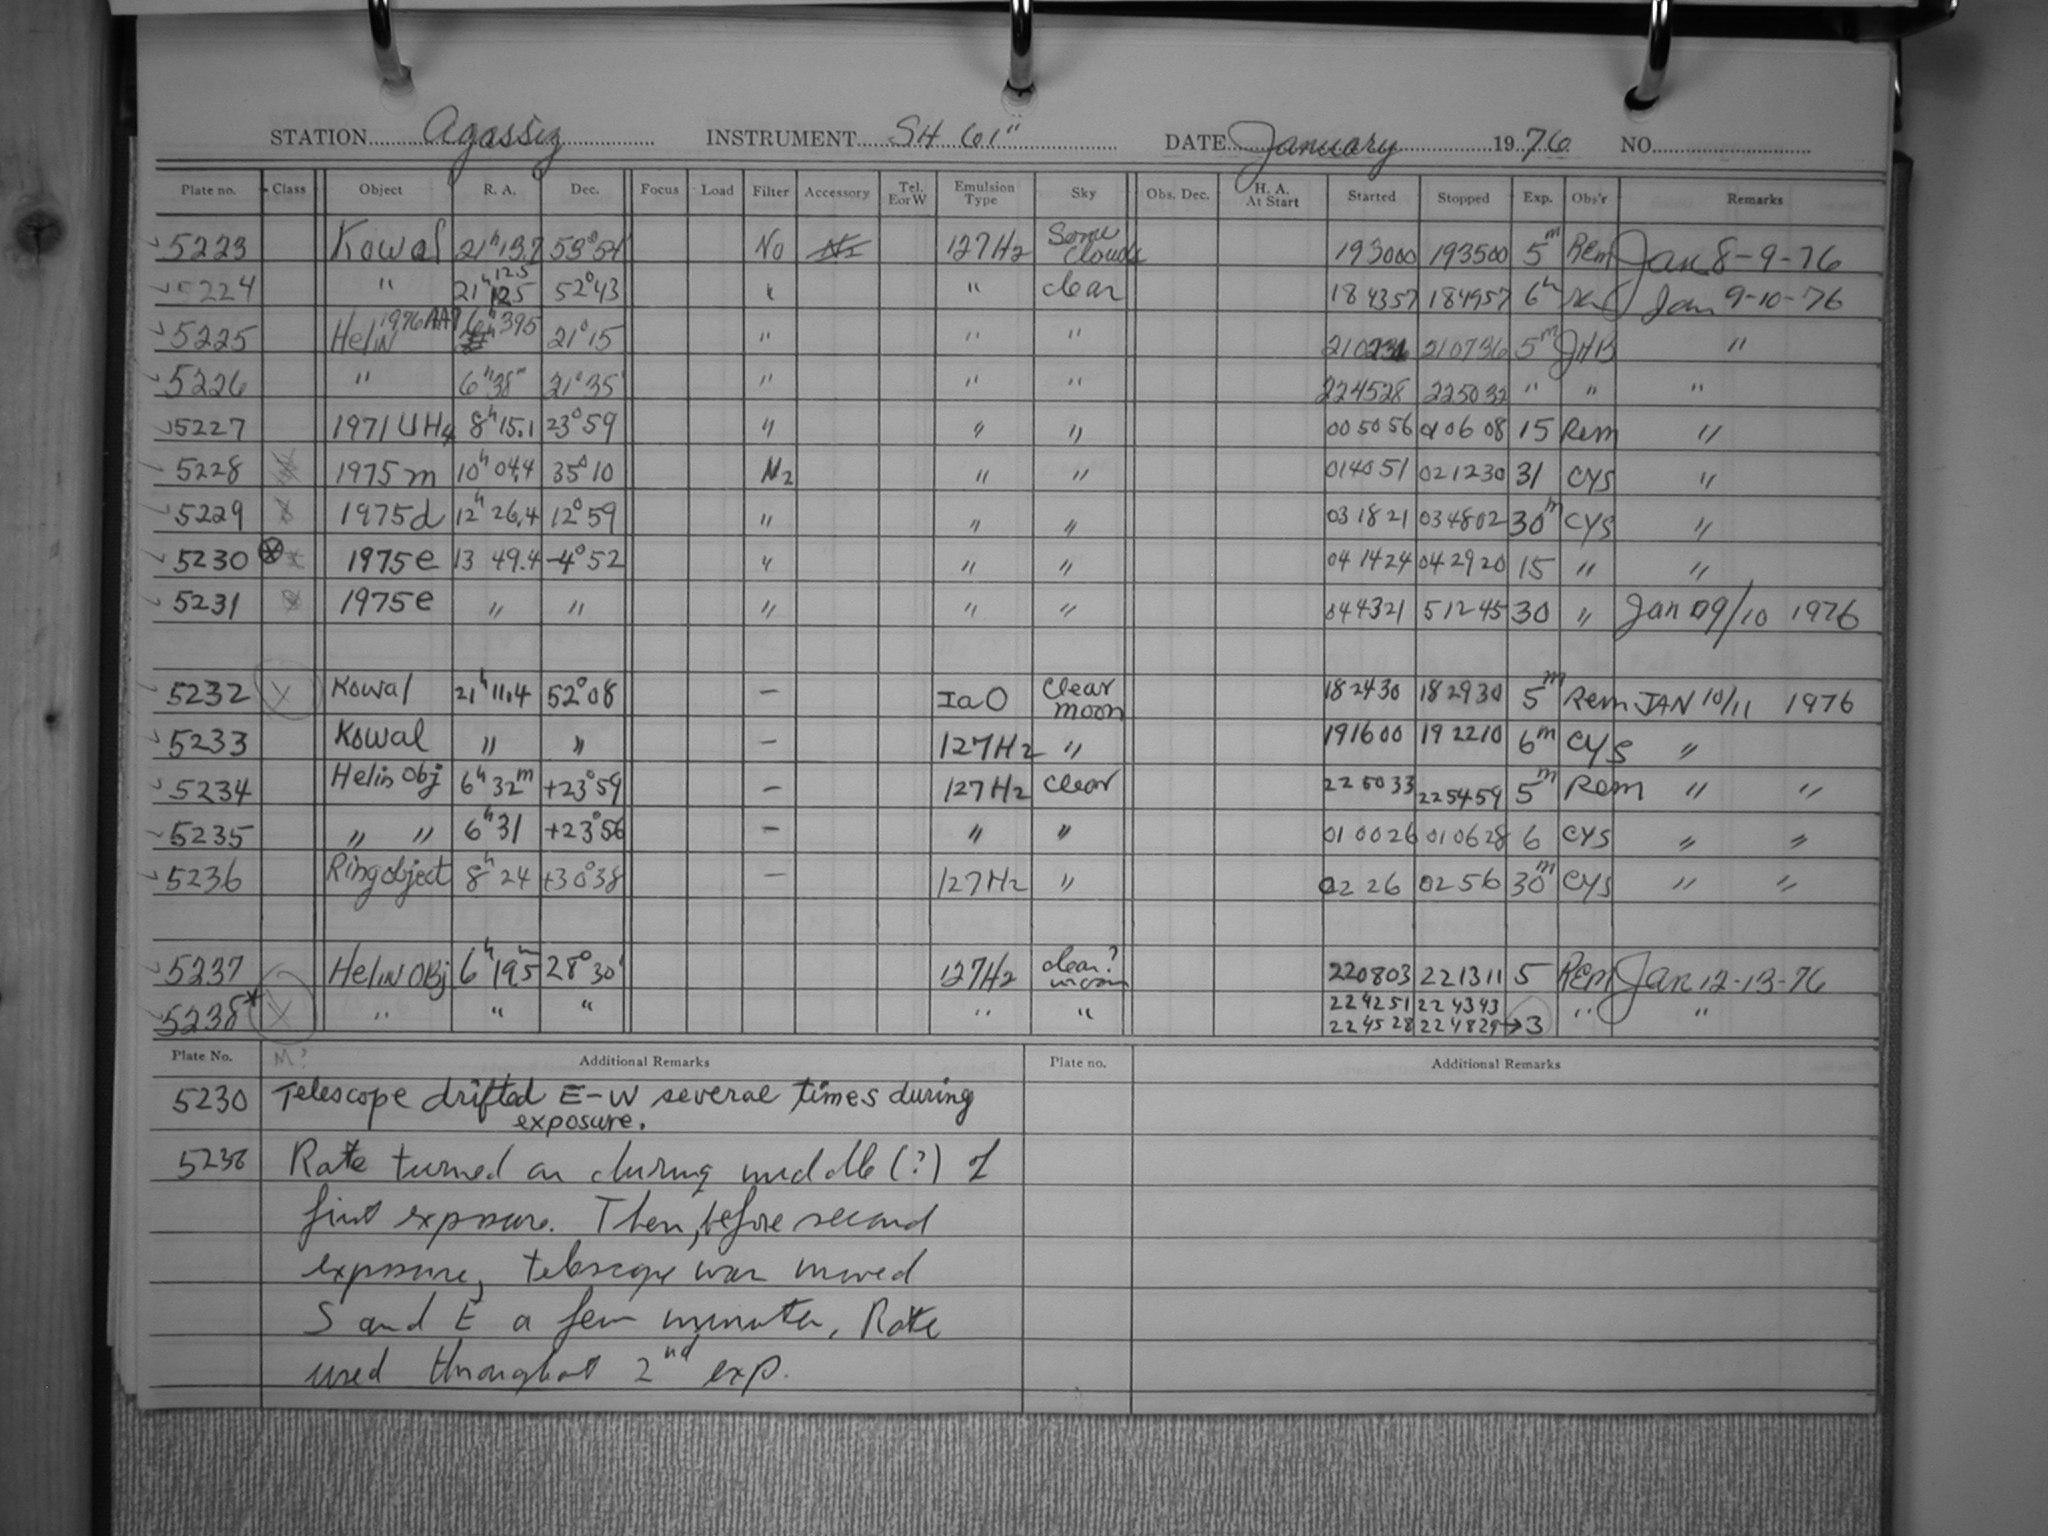 STATION Agassiz INSTRUMENT SH 61" DATE January 1976 NO.
Plate no. Class Object R. A. Dec. Focus Load Filter Accessory Tel. E or W Emulsion Type Sky Obs. Dec. H. A. At Start Started Stopped Exp. Obs'r Remarks
5223 Kowal 21h 13.7 53° 54 No 127H2 Some clouds 193000 193500 5m Rem Jan 8-9-76
5224 " 21h 125 52° 43 " " clear 184357 184957 6m Jan 9-10-76
5225 Helin 1976 AA? 6h 395 21° 15 " " " 210736 5m JHB "
5226 " 6h 38m 21° 35' " " " 224528 225032 " " "
5227 1971 UH4 8h 15.1 23° 59 " " " 005056 010608 15 Rem "
5228 1975m 10h 04.4 35° 10 N2 " " 014051 021230 31 CYS "
5229 1975d 12h 26.4 12° 59 " " " 031821 034802 30m CYS "
5230 1975e 13 49.4 -4° 52 " " " 041424 042920 15 " "
5231 1975e " " " " " 044321 51245 30 " Jan 09/10 1976
5232 X Kowal 21h 11.4 52° 08 - IaO clear moon 182430 182930 5m Rem JAN 10/11 1976
5233 Kowal " " - 127H2 " 191600 192210 6m CYS "
5234 Helin Obj 6h 32m +23° 59 - 127H2 clear 225033 225459 5m Rem " "
5235 " " 6h 31 +23° 56 - " " 010026 010628 6 CYS " "
5236 Ring object 8h 24 +30° 38 - 127H2 " 0226 0256 30m CYS " "
5237 Helin Obj 6h 195m 28° 30' 127H2 clear? moon 220803 221311 5 REM Jan 12-13-76
5238* X " " " " " 224251 224343 " "
224528 224829 → 3
Plate No. M? Additional Remarks Plate no. Additional Remarks
5230 Telescope drifted E-W several times during
exposure.
5238 Rate turned on during middle (?) of
first exposure. Then, before second
exposure, telescope was moved
S and E a few minutes, Rate
used throughout 2nd exp.